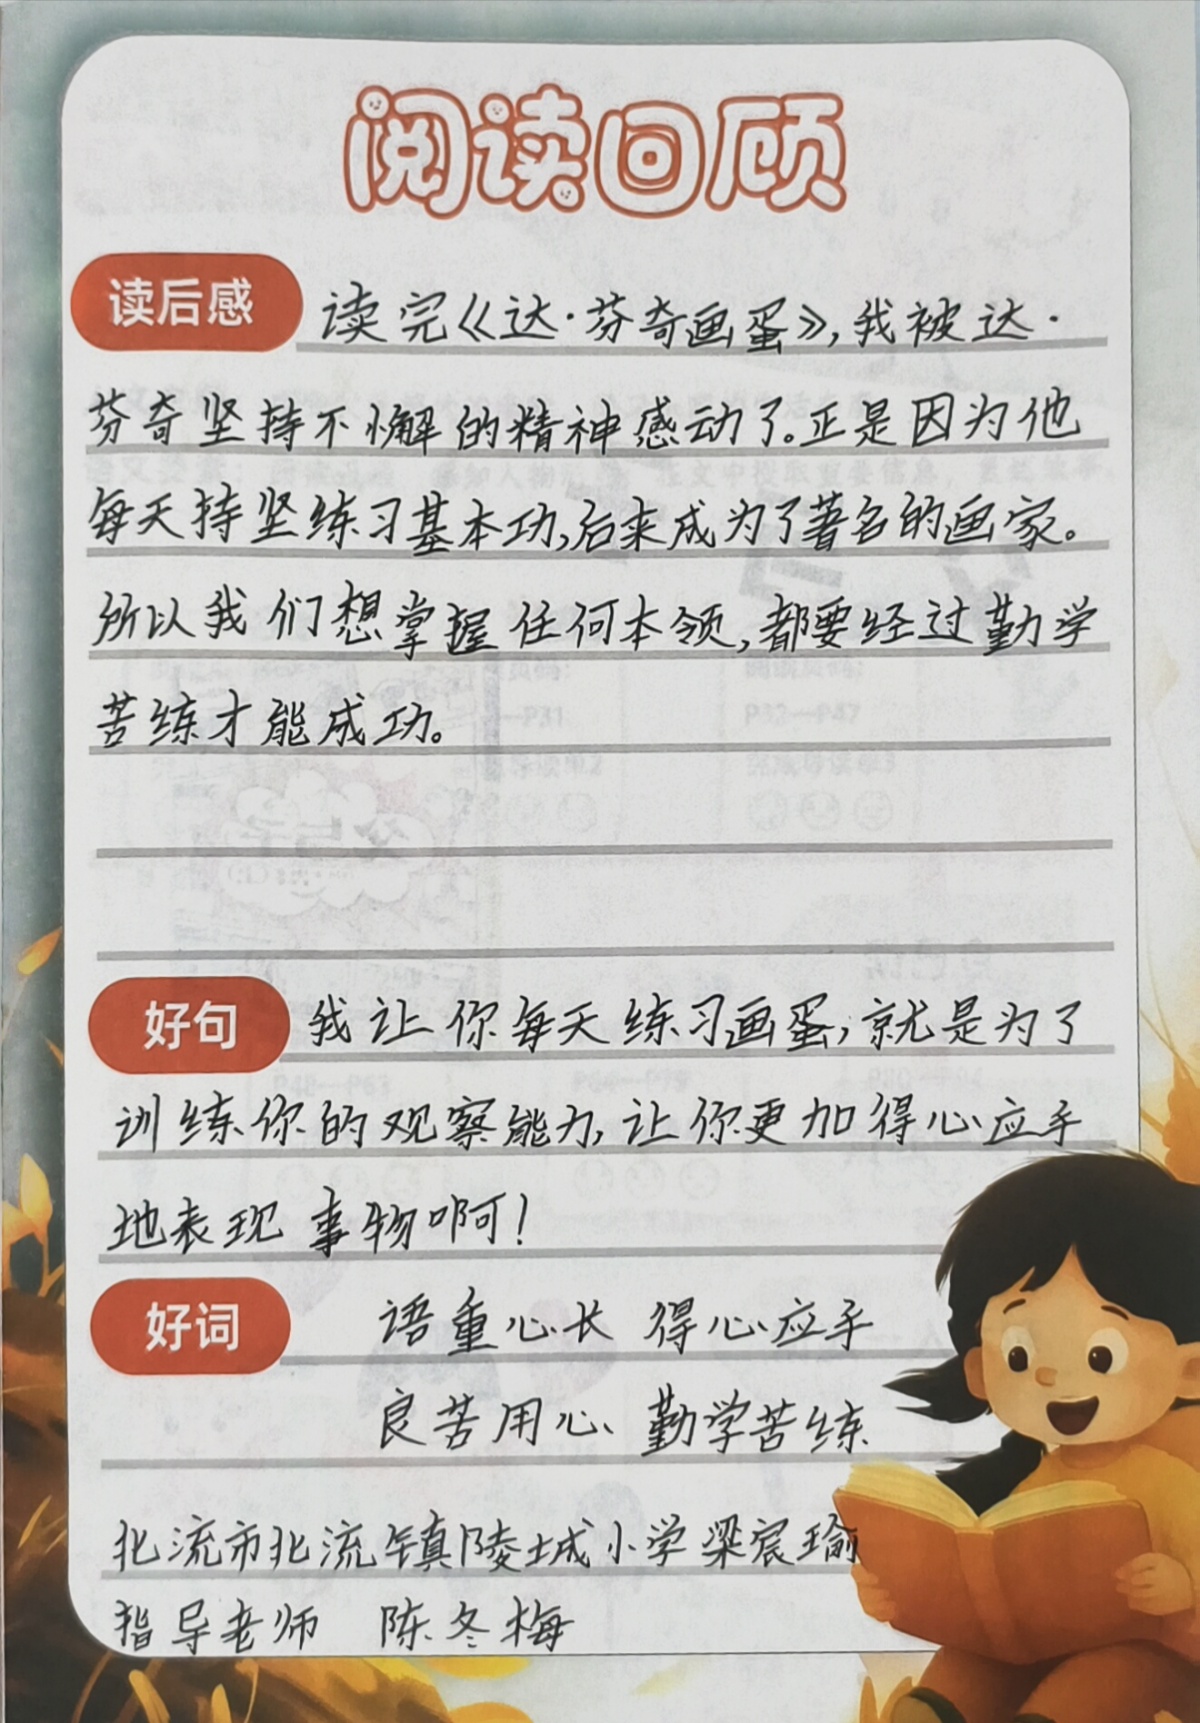 阅读回顾
读后感 读完《达·芬奇画蛋》,我被达·
芬奇坚持不懈的精神感动了。正是因为他
每天持坚练习基本功,后来成为了著名的画家。
所以我们想掌握任何本领,都要经过勤学
苦练才能成功。
好句 我让你每天练习画蛋,就是为了
训练你的观察能力,让你更加得心应手
地表现事物啊!
好词 语重心长 得心应手
良苦用心 勤学苦练
北流市北流镇陵城小学梁宸瑜
指导老师 陈冬梅